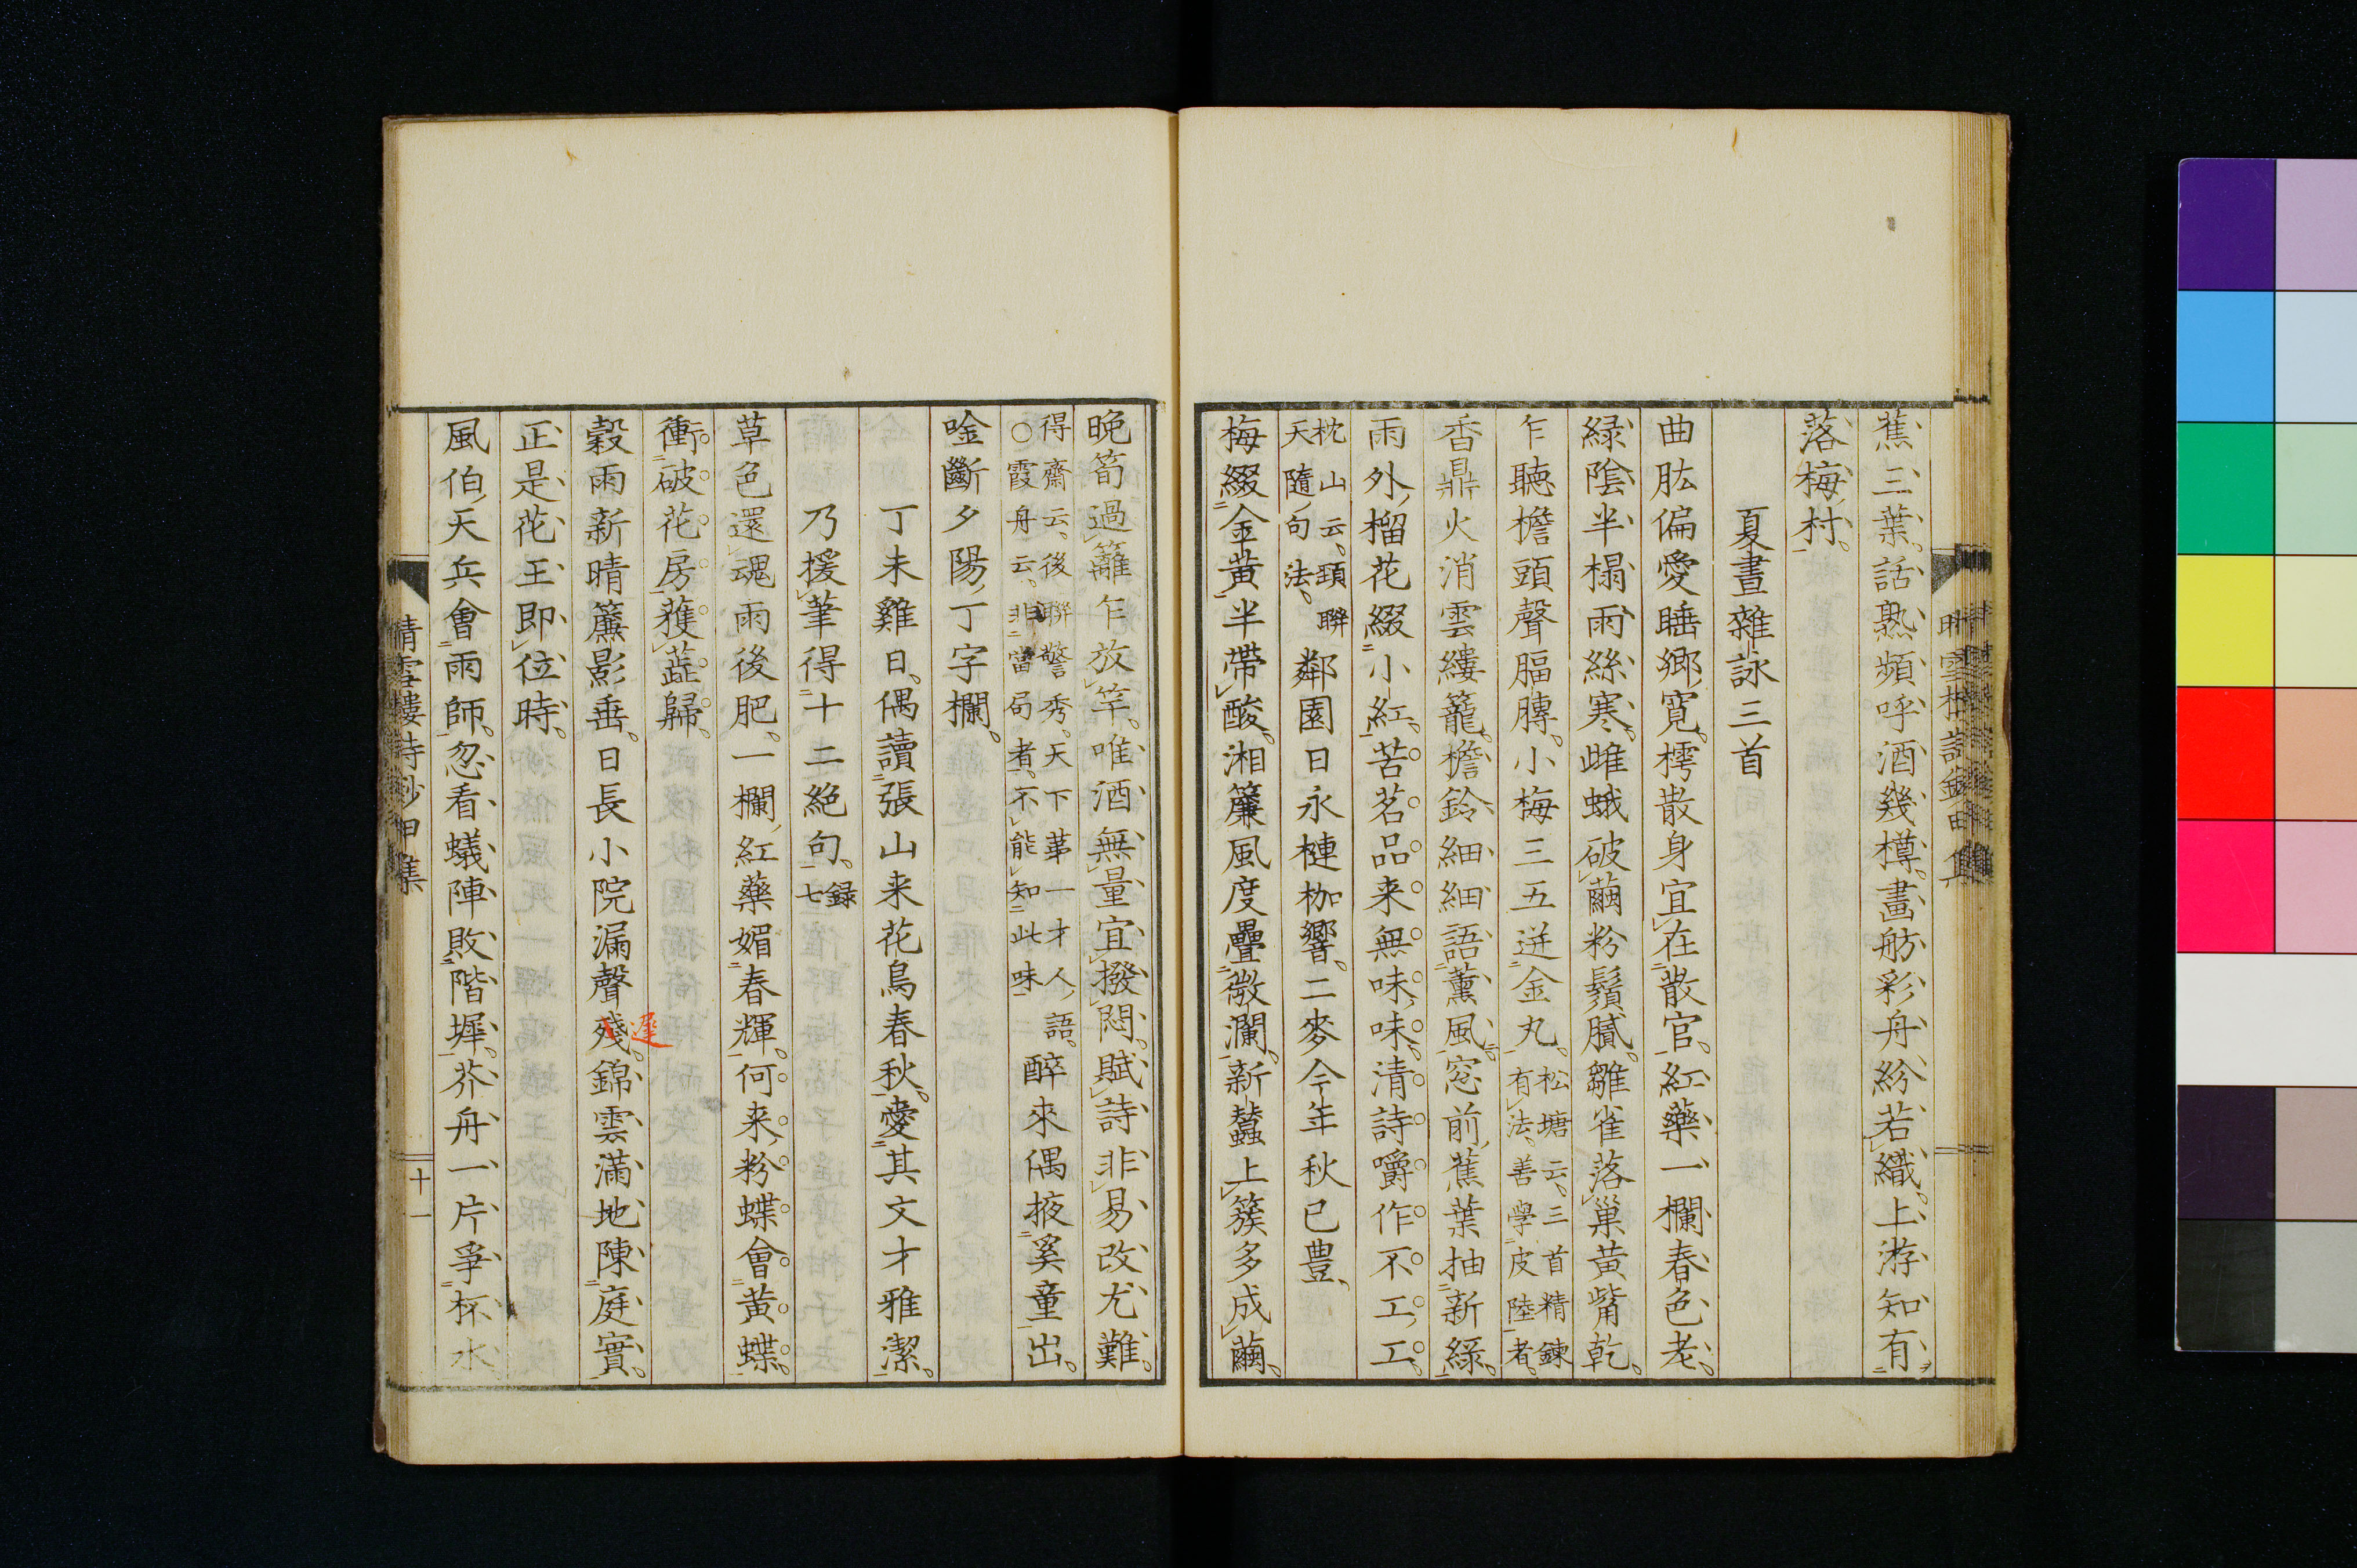 蕉三葉。話熟頻呼酒幾樽。畫舫彩舟紛若織。上游知有
落梅村。
夏晝雜詠三首
曲肱偏愛睡鄉寬。樗散身宜在散官。紅藥一欄春色老。
緑陰半榻雨絲寒。雌蛾破繭粉鬚膩。雛雀落巢黄觜乾。
乍聽檐頭聲腷膊。小梅三五迸金丸。
松塘云、三首精鍊
有法、善學皮陸者。
香鼎火消雲縷籠。檐鈴細細語薫風。窓前蕉葉抽新緑。
雨外榴花綴小紅。苦茗品来無味味。清詩嚼作不工工。
枕山云、頸聯
天隨句法、
鄰園日永槤枷響。二麥今年秋已豊、
梅綴金黄半帶酸。湘簾風度疊微瀾。新蠶上簇多成繭。
晩筍過籬乍放竿。唯酒無量宜撥悶。賦詩非易改尤難。
得齋云、後聯警秀。天下第一才人語。
○霞舟云、非當局者、不能知此味
醉來偶掖奚童出。
唫斷夕陽丁字欄。
丁未雞日、偶讀張山来花鳥春秋。愛其文才雅潔。
乃援筆得十二絶句。
録
七
草色還魂雨後肥。一欄紅藥媚春輝。何来粉蝶會黄蝶。
衝破花房獲蕋歸。
穀雨新晴簾影垂。日長小院漏聲殘。錦雲滿地陳庭實。
遲
正是花王即位時。
風伯天兵會雨師。忽看蟻陣敗階墀。芥舟一片爭杯水。
晴雪樓詩鈔甲集
十一